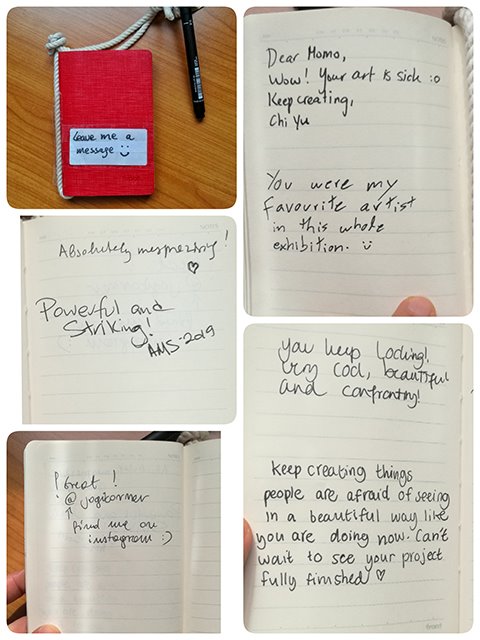 Leave me a
message :)
Dear Momo,
Wow! Your art is sick :o
Keep creating,
Chi Yu
You were my
favourite artist
in this whole
exhibition. :)
Absolutely mesmerising!
♡
Powerful and
Striking!
AMS-2019
you keep looking!
very cool, beautiful
and confronting!
Great!
@jogicorner
↑
find me on
instagram :)
Keep creating things
people are afraid of seeing
in a beautiful way like
you are doing now. Can't
wait to see your project
fully finished ♡